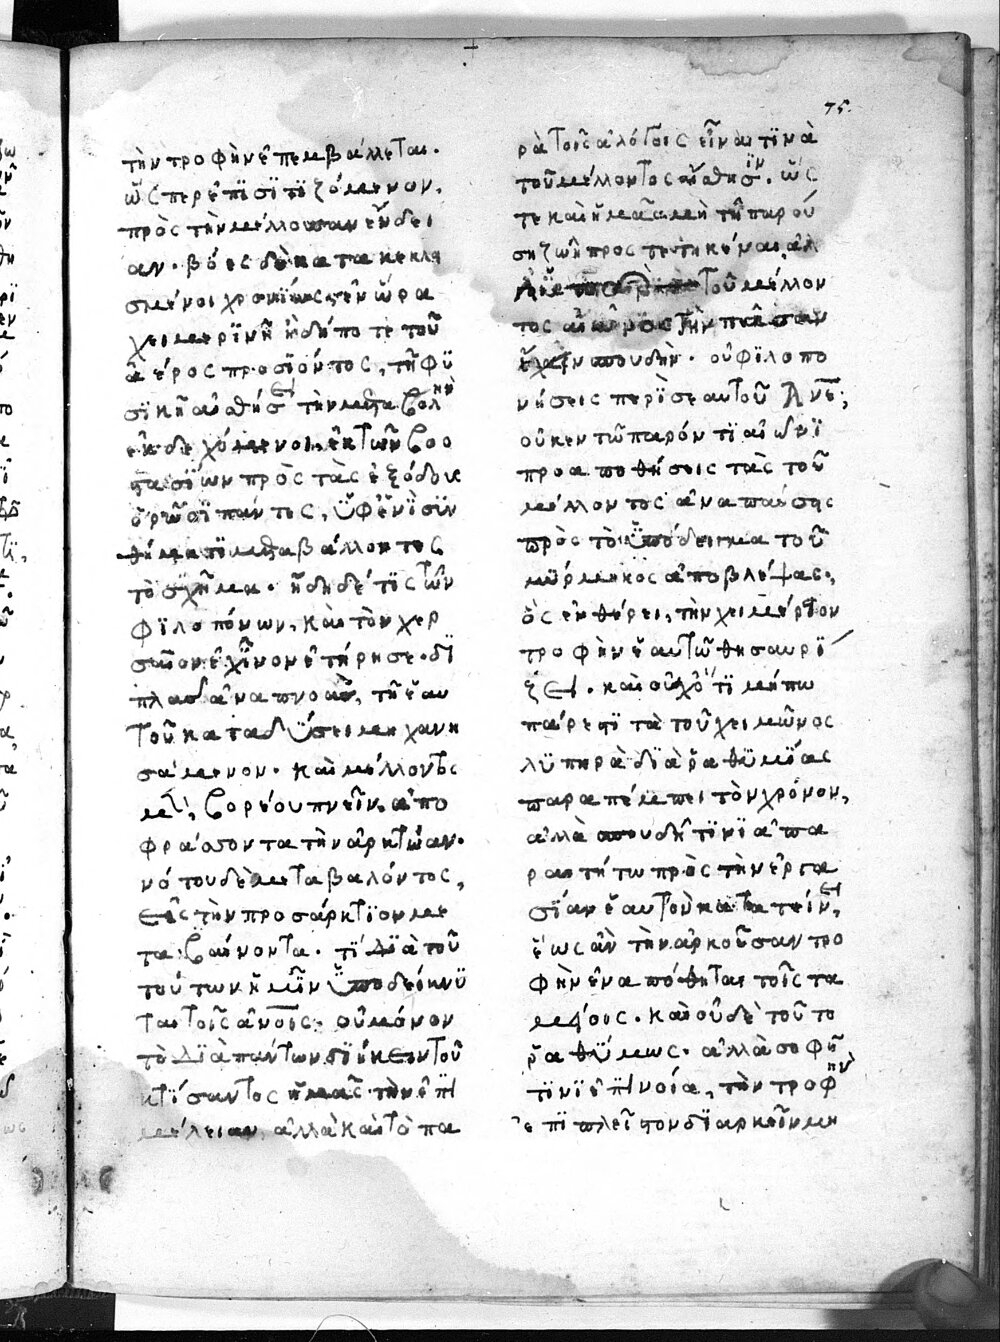 75.
τὴν τροφὴν ἐπεμβάλλεται.
ὥς περ ἐπισιτιζόμενον,
πρὸς τὴν μέλλουσαν ἔνδει
αν. βόες δὲ κατακεκλη
σμένοι χρονίως, ἐν ὥρα
χειμερϊνῆ ἤδη ποτὲ τοῦ
ἀέρος προσϊόντος, τῆ φϋ
σϊκῆ αἰσθήσει τὴν μεταβολὴν
ἐκδεχόμενοι, ἐκ τῶν βου
στασίων πρὸς τὰς ἐξόδους
ὁρῶσϊ πάντες, ὑφ' ἑνὶ σϋν
θήματϊ μεταβάλλοντες
τὸ σχῆμα. ἤδη δέ τϊς τῶν
φϊλοπόνων, καὶ τὸν χερ
σαῖον ἐχῖνον ἐτήρησε. δϊ
πλᾶσ ἀναπνοὰς, τῆ ἑαυ
τοῦ καταδύσει μηχανη
σάμενον. καὶ μέλλοντος
μὲν, βορέου πνεῖν, ἀπο
φράσσοντα τὴν ἀρκτώαν.
νότου δὲ μεταβαλόντος,
εἰς τὴν προσάρκτϊον με
ταβαίνοντα. τί διὰ τοῦ
τούτων ἡμῖν ὑποδείκνϋ
ται τοῖς ἀνοις; οὐ μόνον
τὸ διὰ πάντων διήκειν τοῦ
κτίσαντος ἡμᾶς τὴν ἐπι
μέλειαν, ἀλλὰ καὶ τὸ πα
ρὰ τοῖς ἀλόγοις εἶναι τϊνὰ
τοῦ μέλλοντος αἴσθησϊν. ὥς
τε καὶ ἡμᾶς μὴ τῆ παρού
ση ζωῆ προστετηκέναι, ἀλ
τοῦ μέλλον
τος αἰῶνος τὴν πᾶσαν
ἔχειν σπουδήν. οὐ φϊλοπο
νήσεις περὶ σεαυτοῦ ἄνε;
οὐκ ἐν τῶ παρόντϊ αἰῶνϊ
προαποθήσεις τὰς τοῦ
μέλλοντος ἀναπαύσης
πρὸς τὸ ὑπόδειγμα τοῦ
μύρμηκος ἀποβλέψας,
ὃς ἐν θέρει, τὴν χειμέρϊον
τροφὴν ἑαυτῶ θησαυρί
ζει. καὶ οὐχ' ὅτϊ μήπω
πάρεστϊ τὰ τοῦ χειμῶνος
λϋπηρὰ διὰ ῥαθυμίας
παραπέμπει τὸν χρόνον,
ἀλλὰ σπουδῆ τινὶ ἀπα
ραιτήτω πρὸς τὴν ἐργα
σίαν ἑαυτὸν κατατείνει,
ἕως ἂν τὴν ἀρκοῦσαν τρο
φὴν ἐναπόθηται τοῖς τα
μείοις. καὶ οὐδὲ τοῦτο
ῥαθύμως. ἀλλὰ σοφῆ
τϊνὶ ἐπινοία, τὴν τροφὴν
ἐπϊπλεῖστον δϊαρκεῖν μη